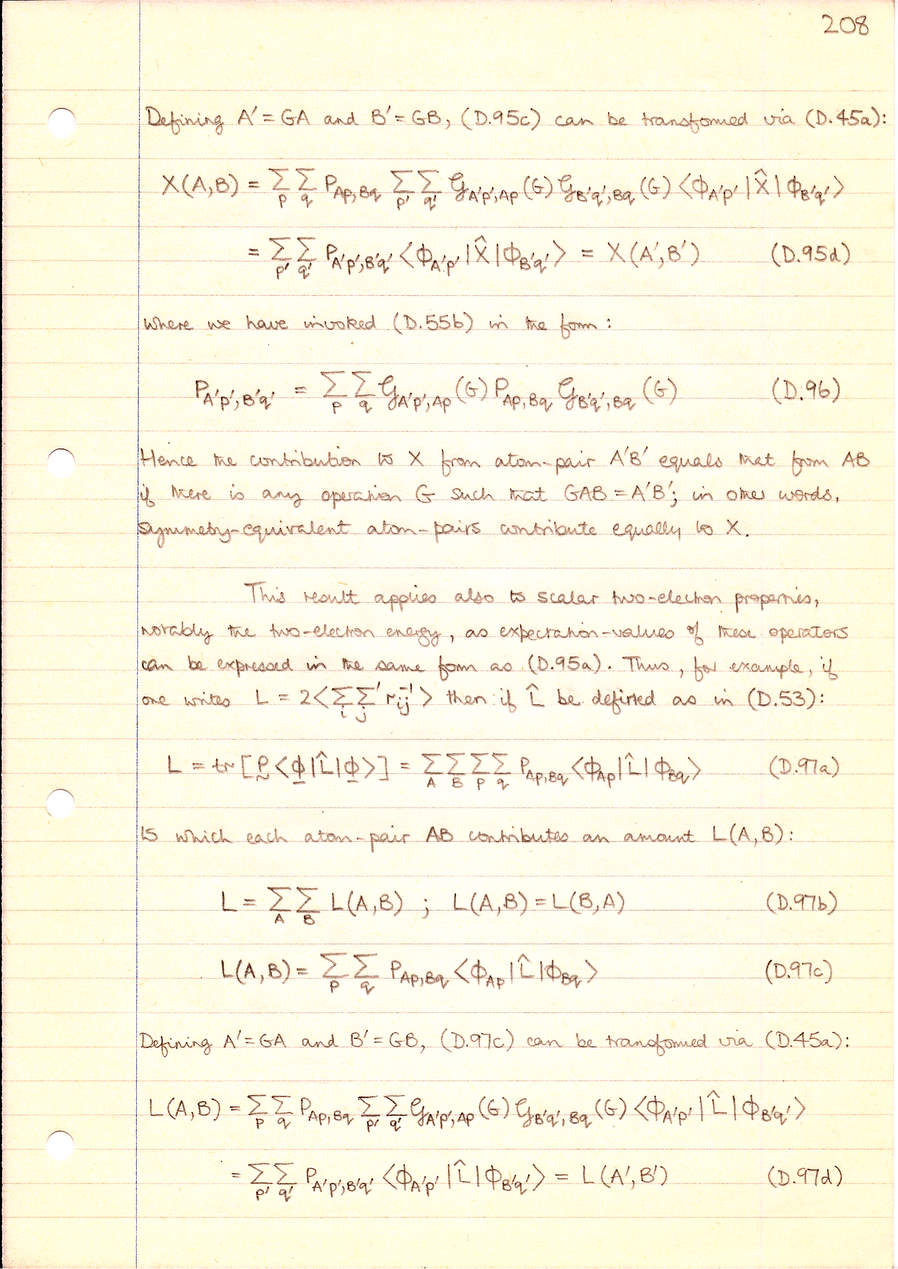 208
Defining A′ = GA and B′ = GB, (D.95c) can be transformed via (D.45a):
X(A,B) = ∑_p ∑_q P_{Ap,Bq} ∑_{p′} ∑_{q′} 𝒢_{A′p′,Ap}(G) 𝒢_{B′q′,Bq}(G) ⟨ϕ_{A′p′}|X̂|ϕ_{B′q′}⟩
= ∑_{p′} ∑_{q′} P_{A′p′,B′q′} ⟨ϕ_{A′p′}|X̂|ϕ_{B′q′}⟩ = X(A′,B′) (D.95d)
where we have invoked (D.55b) in the form:
P_{A′p′,B′q′} = ∑_p ∑_q 𝒢_{A′p′,Ap}(G) P_{Ap,Bq} 𝒢_{B′q′,Bq}(G) (D.96)
Hence the contribution to X from atom-pair A′B′ equals that from AB
if there is any operation G such that GAB = A′B′; in other words,
symmetry-equivalent atom-pairs contribute equally to X.
This result applies also to scalar two-electron properties,
notably the two-electron energy, as expectation-values of these operators
can be expressed in the same form as (D.95a). Thus, for example, if
one writes L = 2⟨∑_i ∑_j′ r_{ij}^{-1}⟩ then if L̂ be defined as in (D.53):
L = tr[P̰⟨ϕ̲|L̂|ϕ̲⟩] = ∑_A ∑_B ∑_p ∑_q P_{Ap,Bq} ⟨ϕ_{Ap}|L̂|ϕ_{Bq}⟩ (D.97a)
to which each atom-pair AB contributes an amount L(A,B):
L = ∑_A ∑_B L(A,B) ; L(A,B) = L(B,A) (D.97b)
L(A,B) = ∑_p ∑_q P_{Ap,Bq} ⟨ϕ_{Ap}|L̂|ϕ_{Bq}⟩ (D.97c)
Defining A′ = GA and B′ = GB, (D.97c) can be transformed via (D.45a):
L(A,B) = ∑_p ∑_q P_{Ap,Bq} ∑_{p′} ∑_{q′} 𝒢_{A′p′,Ap}(G) 𝒢_{B′q′,Bq}(G) ⟨ϕ_{A′p′}|L̂|ϕ_{B′q′}⟩
= ∑_{p′} ∑_{q′} P_{A′p′,B′q′} ⟨ϕ_{A′p′}|L̂|ϕ_{B′q′}⟩ = L(A′,B′) (D.97d)